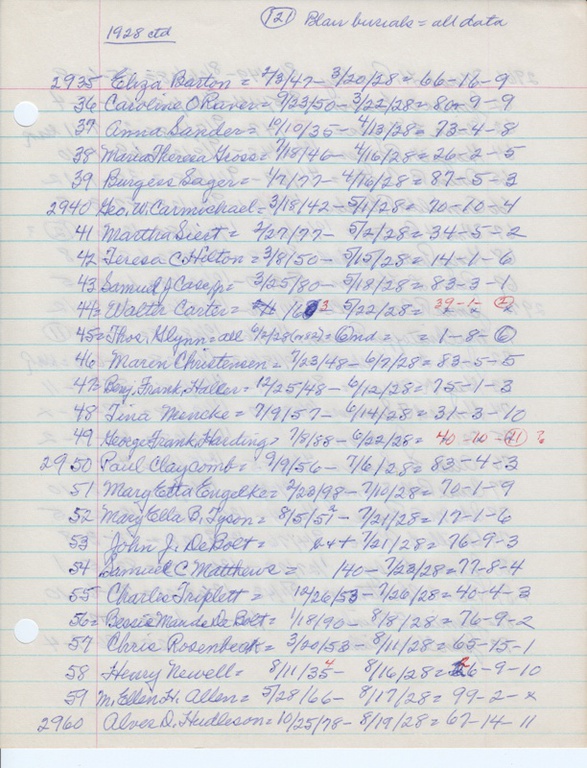 1928 ctd (121) Blair burials = all data
2935 Eliza Barton = 2/3/47 - 3/20/28 = 66-16-9
36 Caroline O Raver = 9/23/50 - 3/22/28 = 80-9-9
37 Anna Sander = 10/10/35 - 4/13/28 = 73-4-8
38 Maria Theresa Gross = 7/18/46 - 4/16/28 = 26-2-5
39 Burgess Seger = 4/7/77 - 4/16/28 = 87-5-3
2940 Geo. W. Carmichael = 3/18/42 - 5/1/28 = 70-10-4
41 Martha Siert = 2/27/77 - 5/2/28 = 34-5-2
42 Teresa C. Hilton = 3/8/50 - 5/15/28 = 14-1-6
43 Samuel J Case, Jr. = 3/25/80 - 5/18/28 = 83-3-1
44 = Walter Carter = 5/22/28 = 39-1-
45 = Thos. Glynn = all 6/2/28 = = 1-8-6
46 = Maren Christensen = 7/23/48 - 6/7/28 = 83-5-5
47 = Benj. Frank. Haller = 12/25/48 - 6/12/28 = 75-1-3
48 Tina Mencke = 7/9/57 - 6/14/28 = 31-3-10
49 George Frank Harding = 7/8/88 - 6/22/28 = 40-10-(11) ?
2950 Paul Claycomb = 9/9/56 - 7/6/28 = 83-4-3
51 Mary Etta Engelke = 2/23/98 - 7/10/28 = 70-1-9
52 Mary Ella B. Tyson = 8/5/51 2 - 7/21/28 = 17-1-6
53 John J. De Bolt = 7/21/28 = 76-9-3
54 Samuel C Matthews = 140 - 7/23/28 = 77-8-4
55 Charlie Triplett = 12/26/53 - 7/26/28 = 40-4-3
56 = Bessie Maude De Bolt = 1/18/90 - 8/8/28 = 76-9-2
57 Chris Rosenbeck = 3/20/53 - 8/11/28 = 65-15-1
58 Henry Newell = 8/11/35 4 - 8/16/28 = 26-9-10
59 M. Ellen H. Allen = 5/28/66 - 8/17/28 = 99-2-x
2960 Alver D. Hudleson = 10/25/78 - 8/19/28 = 67-14-11